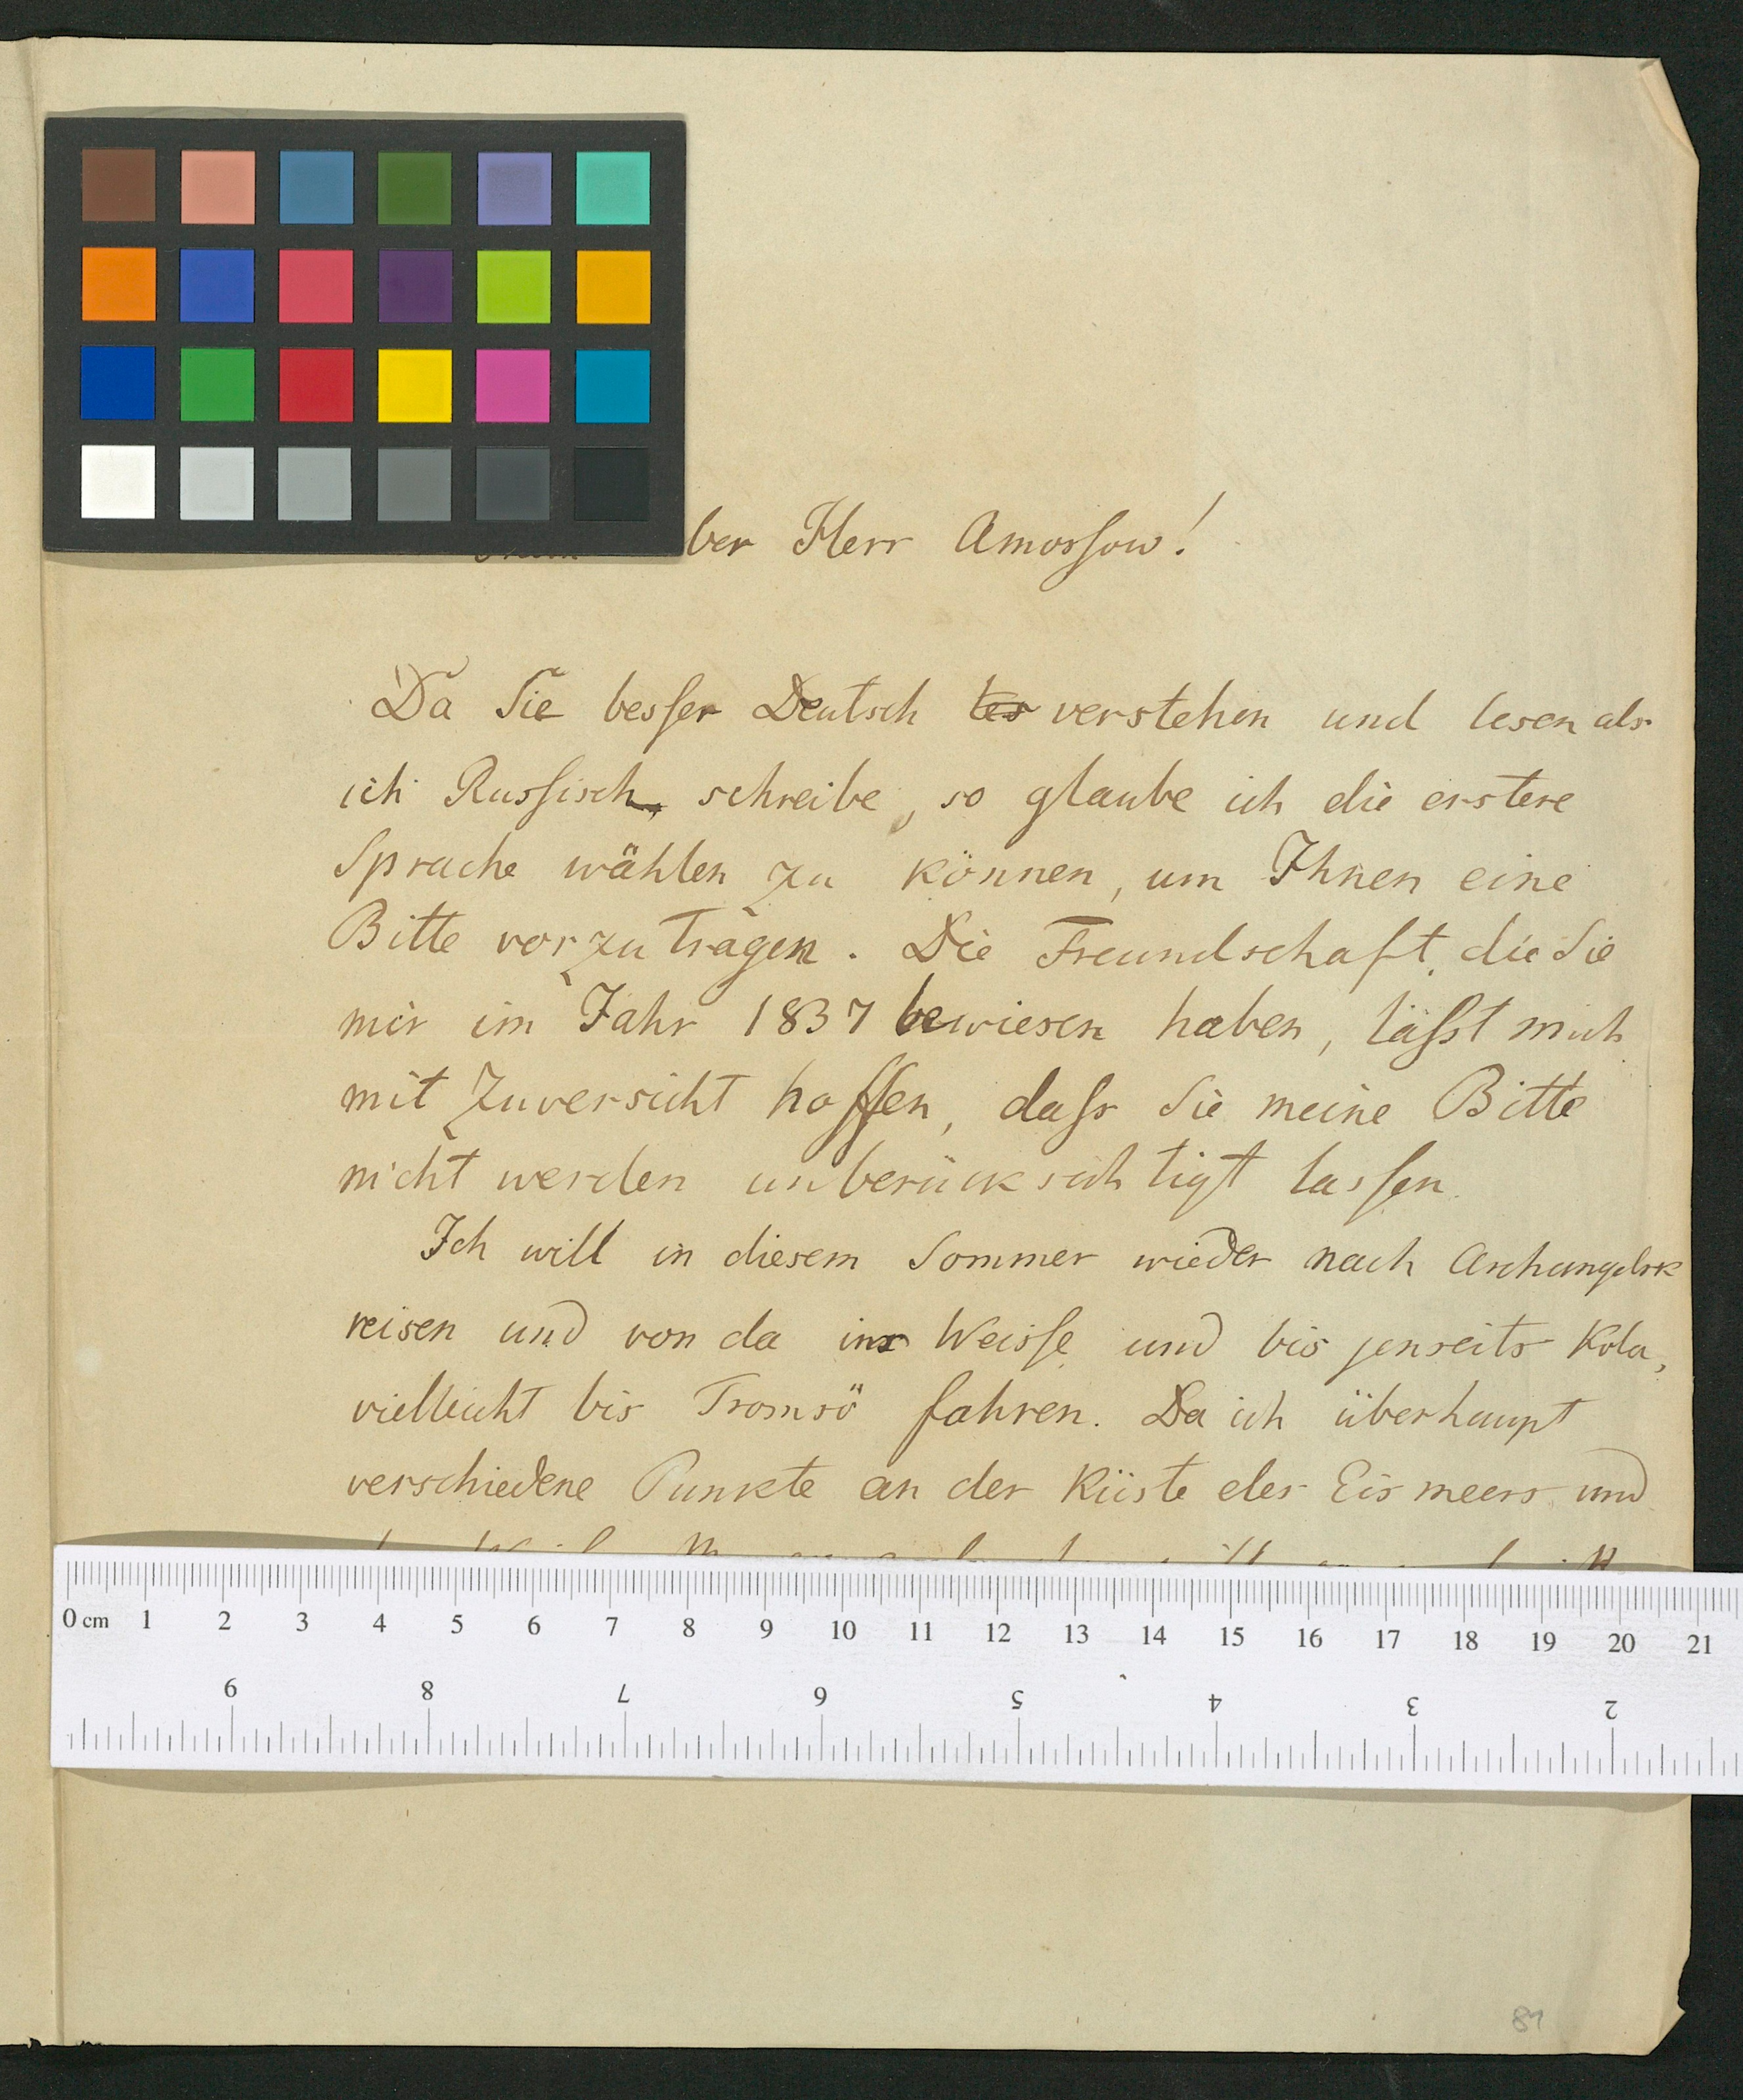 ber Herr Amossow!
Da Sie besser Deutsch verstehen und lesen als
ich Russisch schreibe, so glaube ich die erstere
Sprache wählen zu können, um Ihnen eine
Bitte vorzutragen. Die Freundschaft, die Sie
mir im Jahr 1837 bewiesen haben, lässt mich
mit Zuversicht hoffen, dass Sie meine Bitte
nicht werden unberücksichtigt lassen.
Ich will in diesem Sommer wieder nach Archangelsk
reisen und von da ins Weisse und bis jenseits Kola,
vielleicht bis Tromsö fahren. Da ich überhaupt
verschiedene Punkte an der Küste des Eismeers und
0 cm 1 2 3 4 5 6 7 8 9 10 11 12 13 14 15 16 17 18 19 20 21
9 8 7 6 5 4 3 2
81